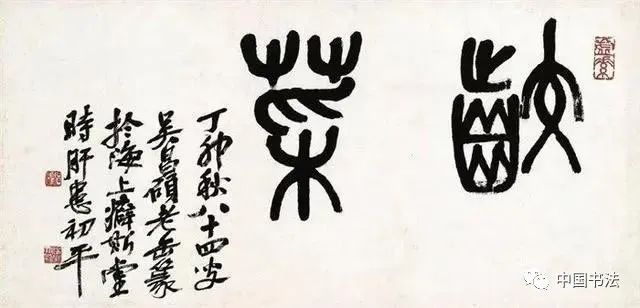 齩菜
丁卯秋八十四叟
吴昌碩老缶篆
於海上癖斯堂
時肝患初平
中国书法